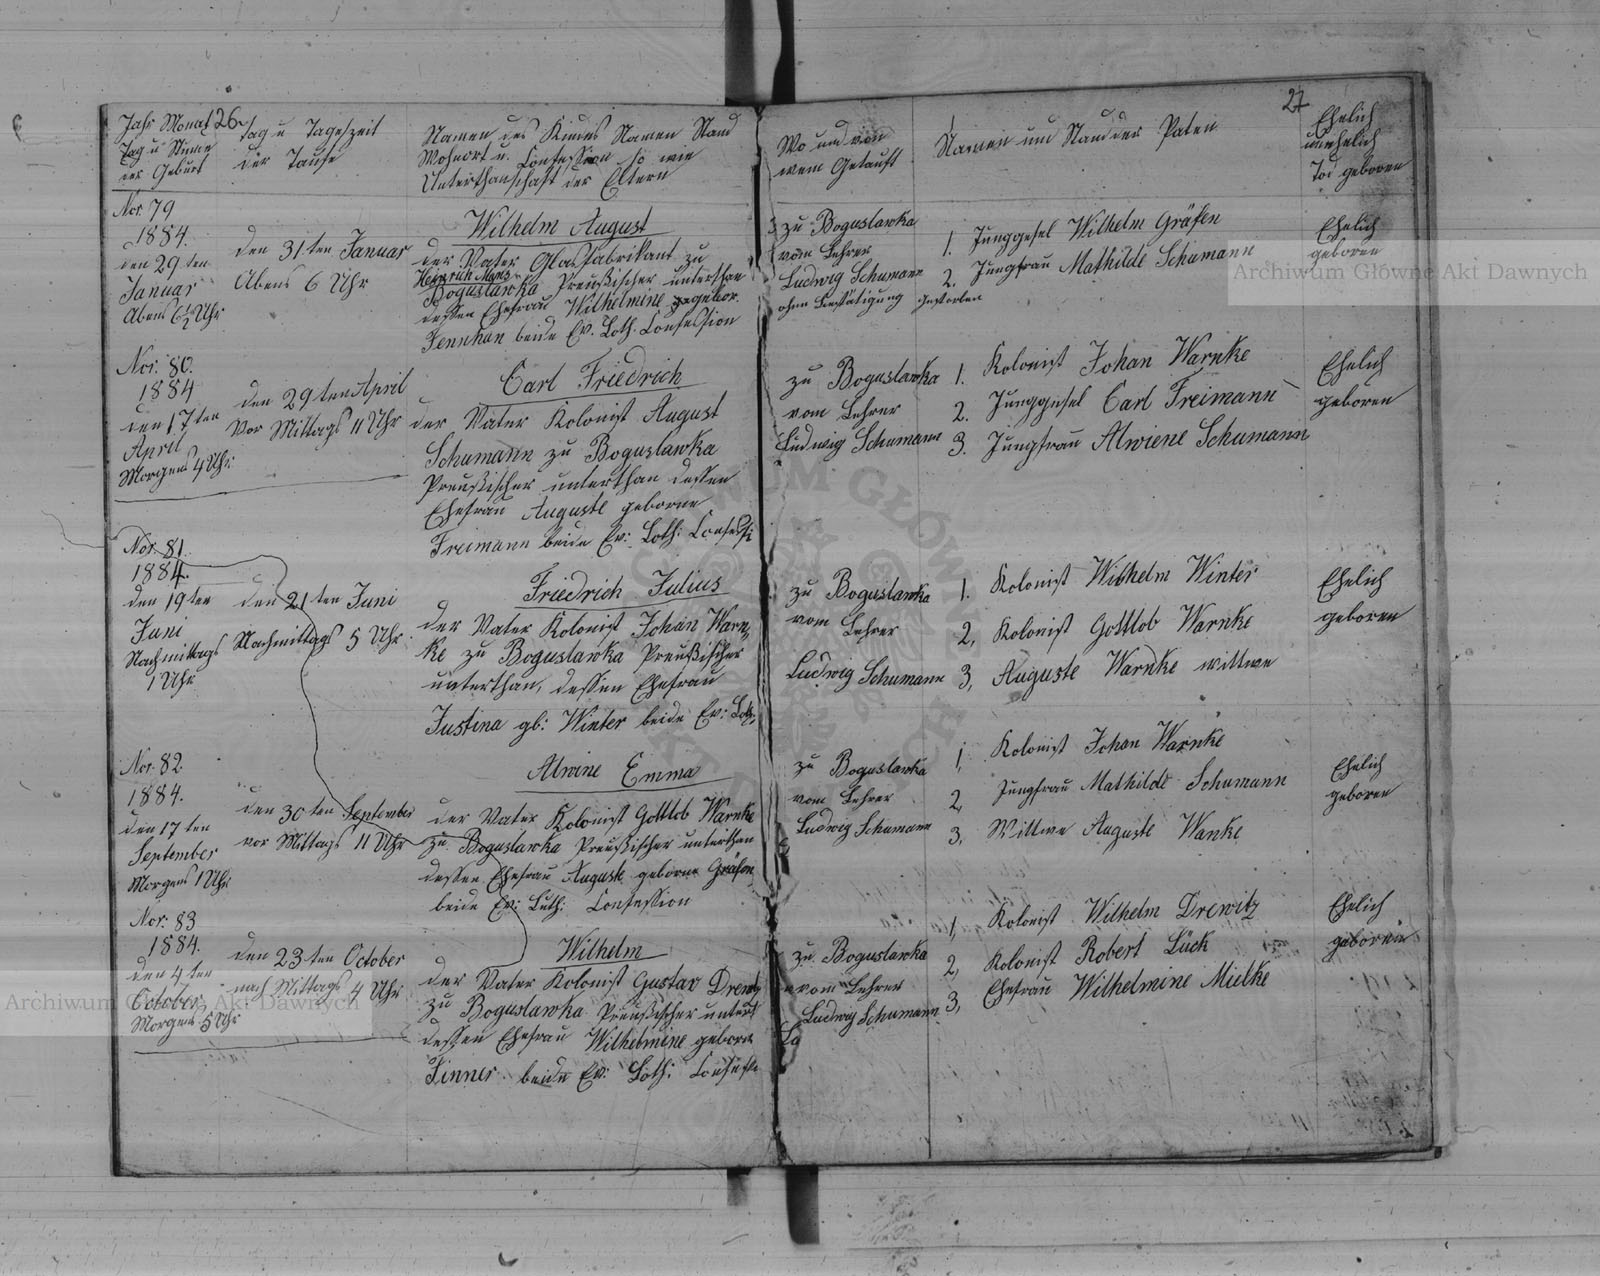 26.
Jahr Monat
Tag u Stunde
der Geburt
Tag u Tageszeit
der Taufe
Namen des Kindes Namen Stand
Wohnort u. Confession so wie
Unterthanschaft der Eltern
Wo und von
wem Getauft
Namen und Stand der Paten
27
Ehelich
unehelich
Tod geboren
Nor. 79
1884.
den 29 ten
Januar
Abens 6½ Uhr
den 31 ten Januar
Abens 6 Uhr
Wilhelm August
der Vater Glasfabrikant zu
Heinrich
Boguslawka Preußischer unterthan
dessen Ehefrau Wilhelmine gegebor.
Jennhan beide Ev. Loth. Confession
zu Boguslawka
vom Lehrer
Ludwig Schumann
ohne Bestätigung gestorben
1. Junggesel Wilhelm Gräfen
2. Jungfrau Mathilde Schumann
Ehelich
geboren
Nor. 80.
1884
den 17 ten
April
Morgens 4 Uhr.
den 29 ten April
Vor Mittags 11 Uhr
Carl Friedrich
der Vater Kolonist August
Schumann zu Boguslawka
Preußischer unterthan dessen
Ehefrau Auguste geborne
Freimann beide Ev: Loth: Confessi
zu Boguslawka
vom Lehrer
Ludwig Schumann
1. Kolonist Johan Warnke
2. Junggesel Carl Freimann
3. Jungfrau Alwiene Schumann
Ehelich
geboren
Nor. 81.
1884.
den 19 ten
Juni
Nachmittags
1 Uhr
den 21 ten Juni
Nachmittags 5 Uhr.
Friedrich Julius
der Vater Kolonist Johan Warn,
ke zu Boguslawka Preußischer
unterthan, dessen Ehefrau
Justina gb: Winter beide Ev: Loth,
zu Boguslawka
vom Lehrer
Ludwig Schumann
1. Kolonist Wilhelm Winter
2, Kolonist Gottlob Warnke
3, Auguste Warnke wittwe
Ehelich
geboren
Nor. 82
1884.
den 17 ten
September
Morgens 1 Uhr
den 30 ten September
vor Mittags 11 Uhr
Alwine Emma
der Vater Kolonist Gottlob Warnke
zu Boguslawka Preußischer unterthan
dessen Ehefrau Auguste geborne Gräfen
beide Ev: Luth: Confession
zu Boguslawka
vom Lehrer
Ludwig Schumann
1, Kolonist Johan Warnke
2, Jungfrau Mathilde Schumann
3, Wittwe Auguste Wanke
Ehelich
geboren
Nor: 83
1884.
den 4 ten
October
Morgens 5 Uhr
den 23 ten October
nach Mittags 4 Uhr
Wilhelm
der Vater Kolonist Gustav Drewi
zu Boguslawka Preußischer untert
dessen Ehefrau Wilhelmine geborn
Finner beide Ev: Loth: Confessi
zu Boguslawka
vom Lehrer
Ludwig Schumann
1, Kolonist Wilhelm Drewitz
2, Kolonist Robert Lück
3, Ehefrau Wilhelmine Mielke
Ehelich
geboren
Archiwum Główne Akt Dawnych
Archiwum Główne Akt Dawnych